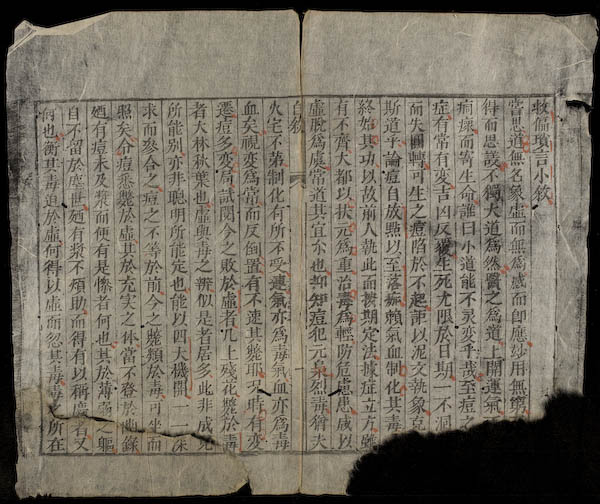 救偏瑣言小敘
嘗思道無名象虛而無為感而即應妙用無窮
得而思議不獨大道為然寶之為道上開運氣
痌瘝而寄生命誰曰小道能不灵变乎哉至痘之
症有常有変吉凶反覆生死尢限於日期一不洞
而失圓轉可生之痘陷於不起詎以泥文執象克
斯道乎論痘自放點以至落痂賴氣血制化其毒
終始其功以故前人執此而撰期定法據症立方雖
有不齊大都以狀元為重治毒為輕防危慮患咸以
虛脫為虞常道其宜尒也抑知痘犯元枭烈毒猶夫
自敘
火宅不第制化有所不受運氣亦為毒氣血亦為毒
血矣視变為常而反倒置有不速其斃耶乃時有变
遷痘多变局試閱今之敗於虛者几上残花斃於毒
者大林秋葉也虛與毒之辨似是者居多此非成見
所能別亦非聰明所能定也能以四大機開一一深
求而參合之痘之不等於前今之斃類於毒可坐而
照矣合痘悉斃於虛其於充实之体當不登於鬼錄
廼有痘未及漿而便有是慘者何也其於薄弱之軀
自不留於塵世廼有漿不煩助而得有以稱慶者又
何也衡其毒迫於虛何得以虛而忽其毒毒之所在